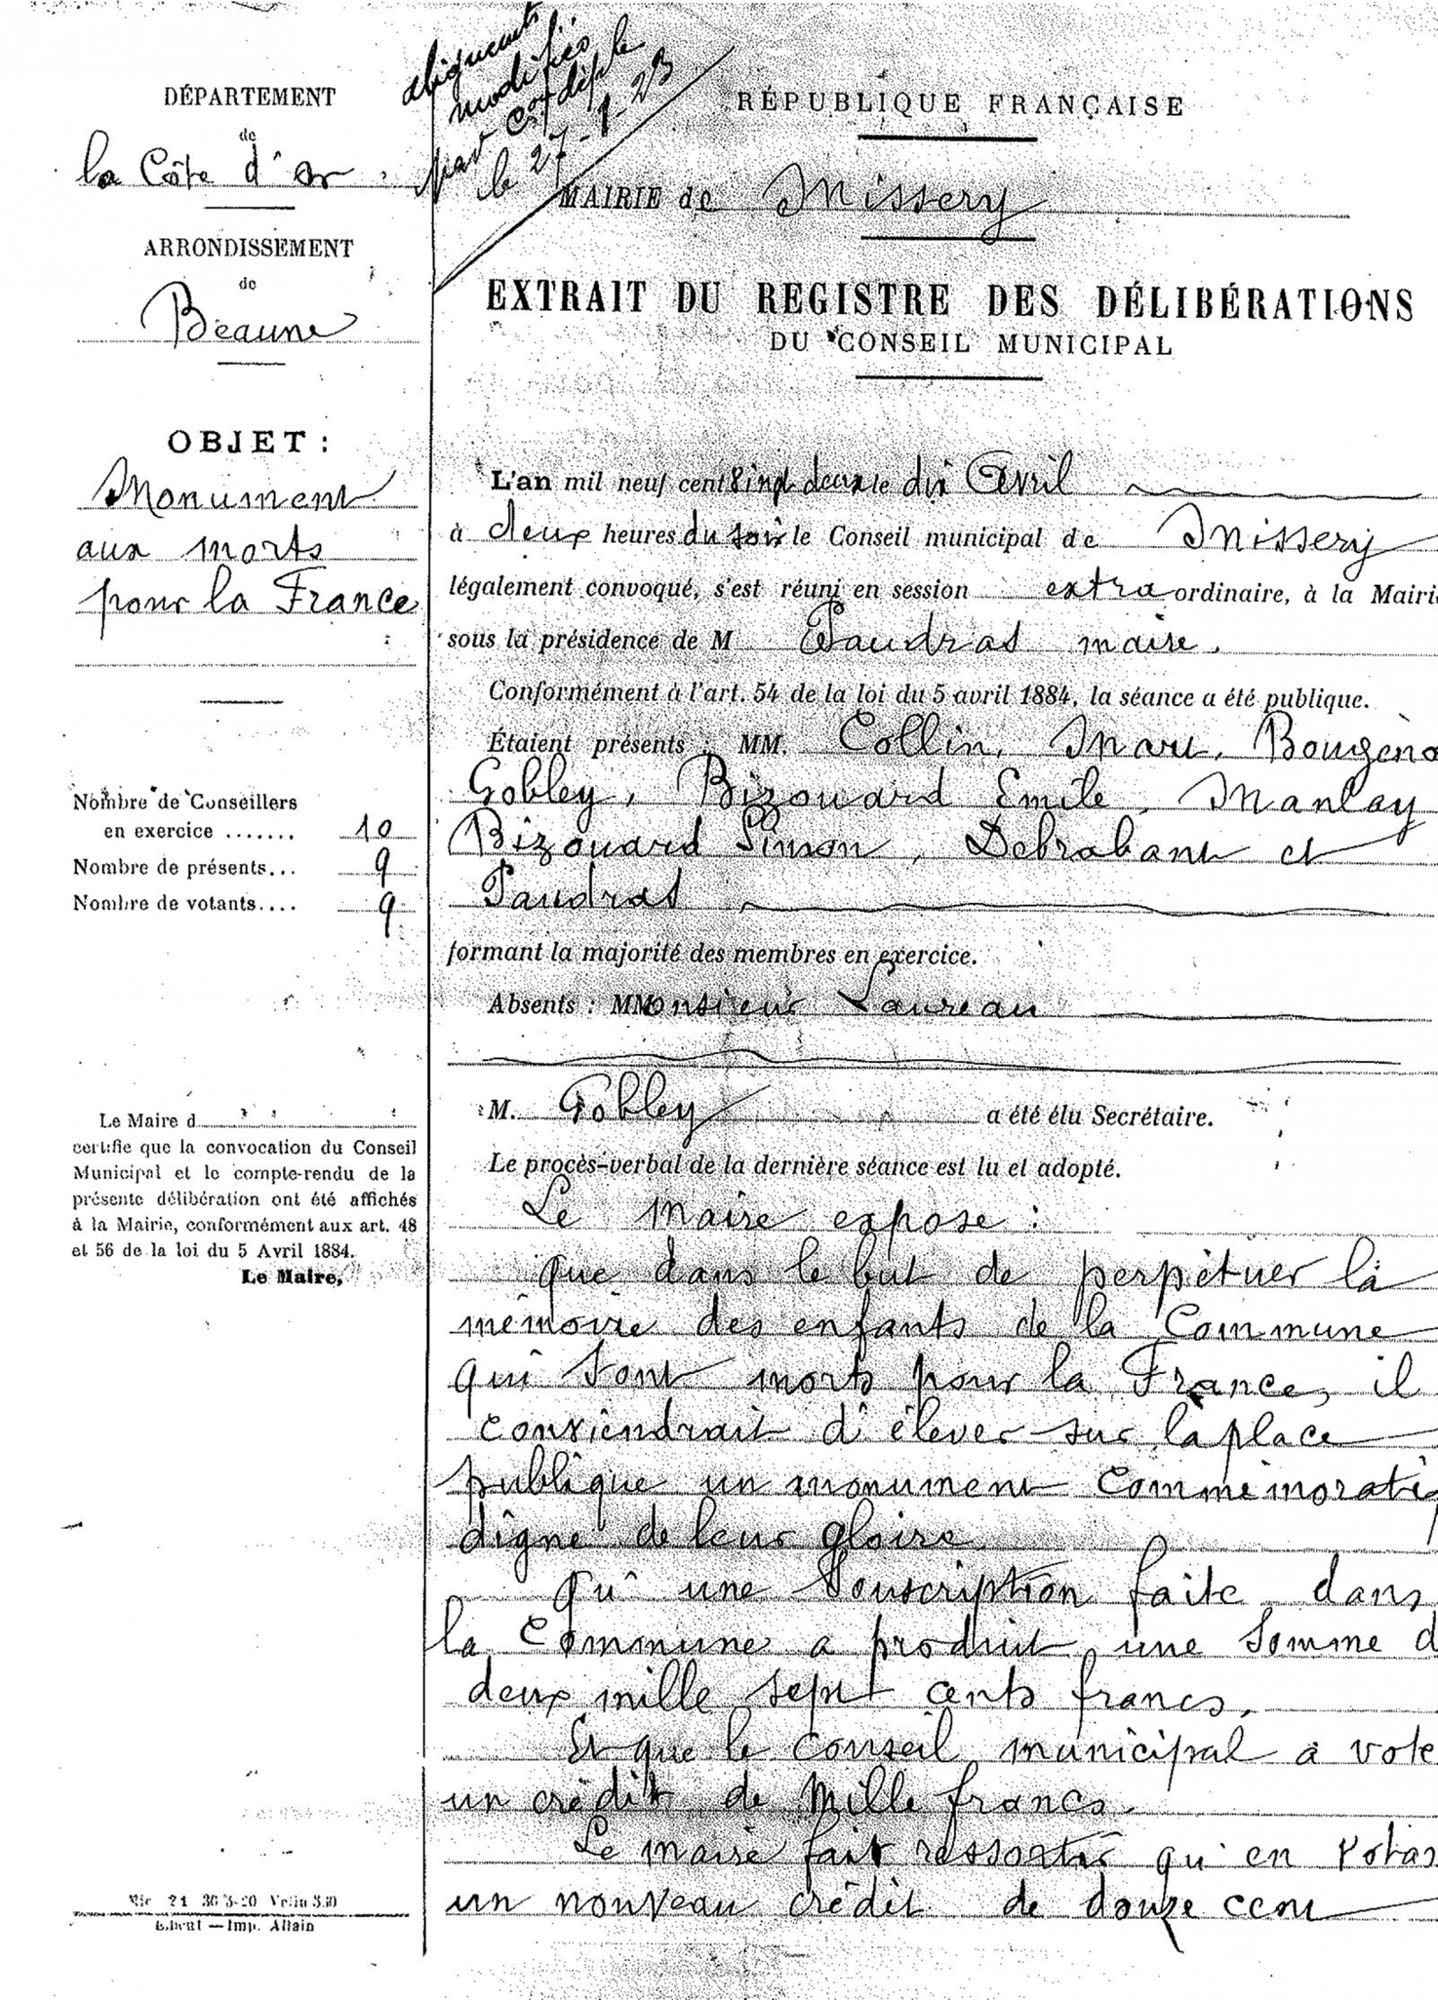 modifiés
le 27-1-23
DÉPARTEMENT
de
la Côte d'Or
ARRONDISSEMENT
de
Beaune
OBJET :
Monument
aux morts
pour la France
Nombre de Conseillers
en exercice ....... 10
Nombre de présents... 9
Nombre de votants.... 9
Le Maire d
certifie que la convocation du Conseil
Municipal et le compte-rendu de la
présente délibération ont été affichés
à la Mairie, conformément aux art. 48
et 56 de la loi du 5 Avril 1884.
Le Maire,
Imp. Allain
RÉPUBLIQUE FRANÇAISE
MAIRIE de Missery
EXTRAIT DU REGISTRE DES DÉLIBÉRATIONS
DU CONSEIL MUNICIPAL
L'an mil neuf cent vingt deux le dix Avril
à deux heures du soir le Conseil municipal de Missery
légalement convoqué, s'est réuni en session extra ordinaire, à la Mairie
sous la présidence de M Paudras maire.
Conformément à l'art. 54 de la loi du 5 avril 1884, la séance a été publique.
Étaient présents : MM. Collin,
Gobley, Bizouard Emile, Manlay
Bizouard Simon, Debrabant et
Paudras
formant la majorité des membres en exercice.
Absents : MMonsieur Laureau
M. Gobley a été élu Secrétaire.
Le procès-verbal de la dernière séance est lu et adopté.
Le maire expose :
que dans le but de perpétuer la
mémoire des enfants de la Commune
qui sont morts pour la France, il
conviendrait d'élever sur la place
publique un monument Commémoratif
digne de leur gloire
Qu'une Souscription faite dans
la Commune a produit une Somme d
deux mille sept cents francs.
Et que le Conseil municipal a vote
un crédit de Mille francs.
Le maire fait ressortir qu'en votan
un nouveau crédit de douze cent